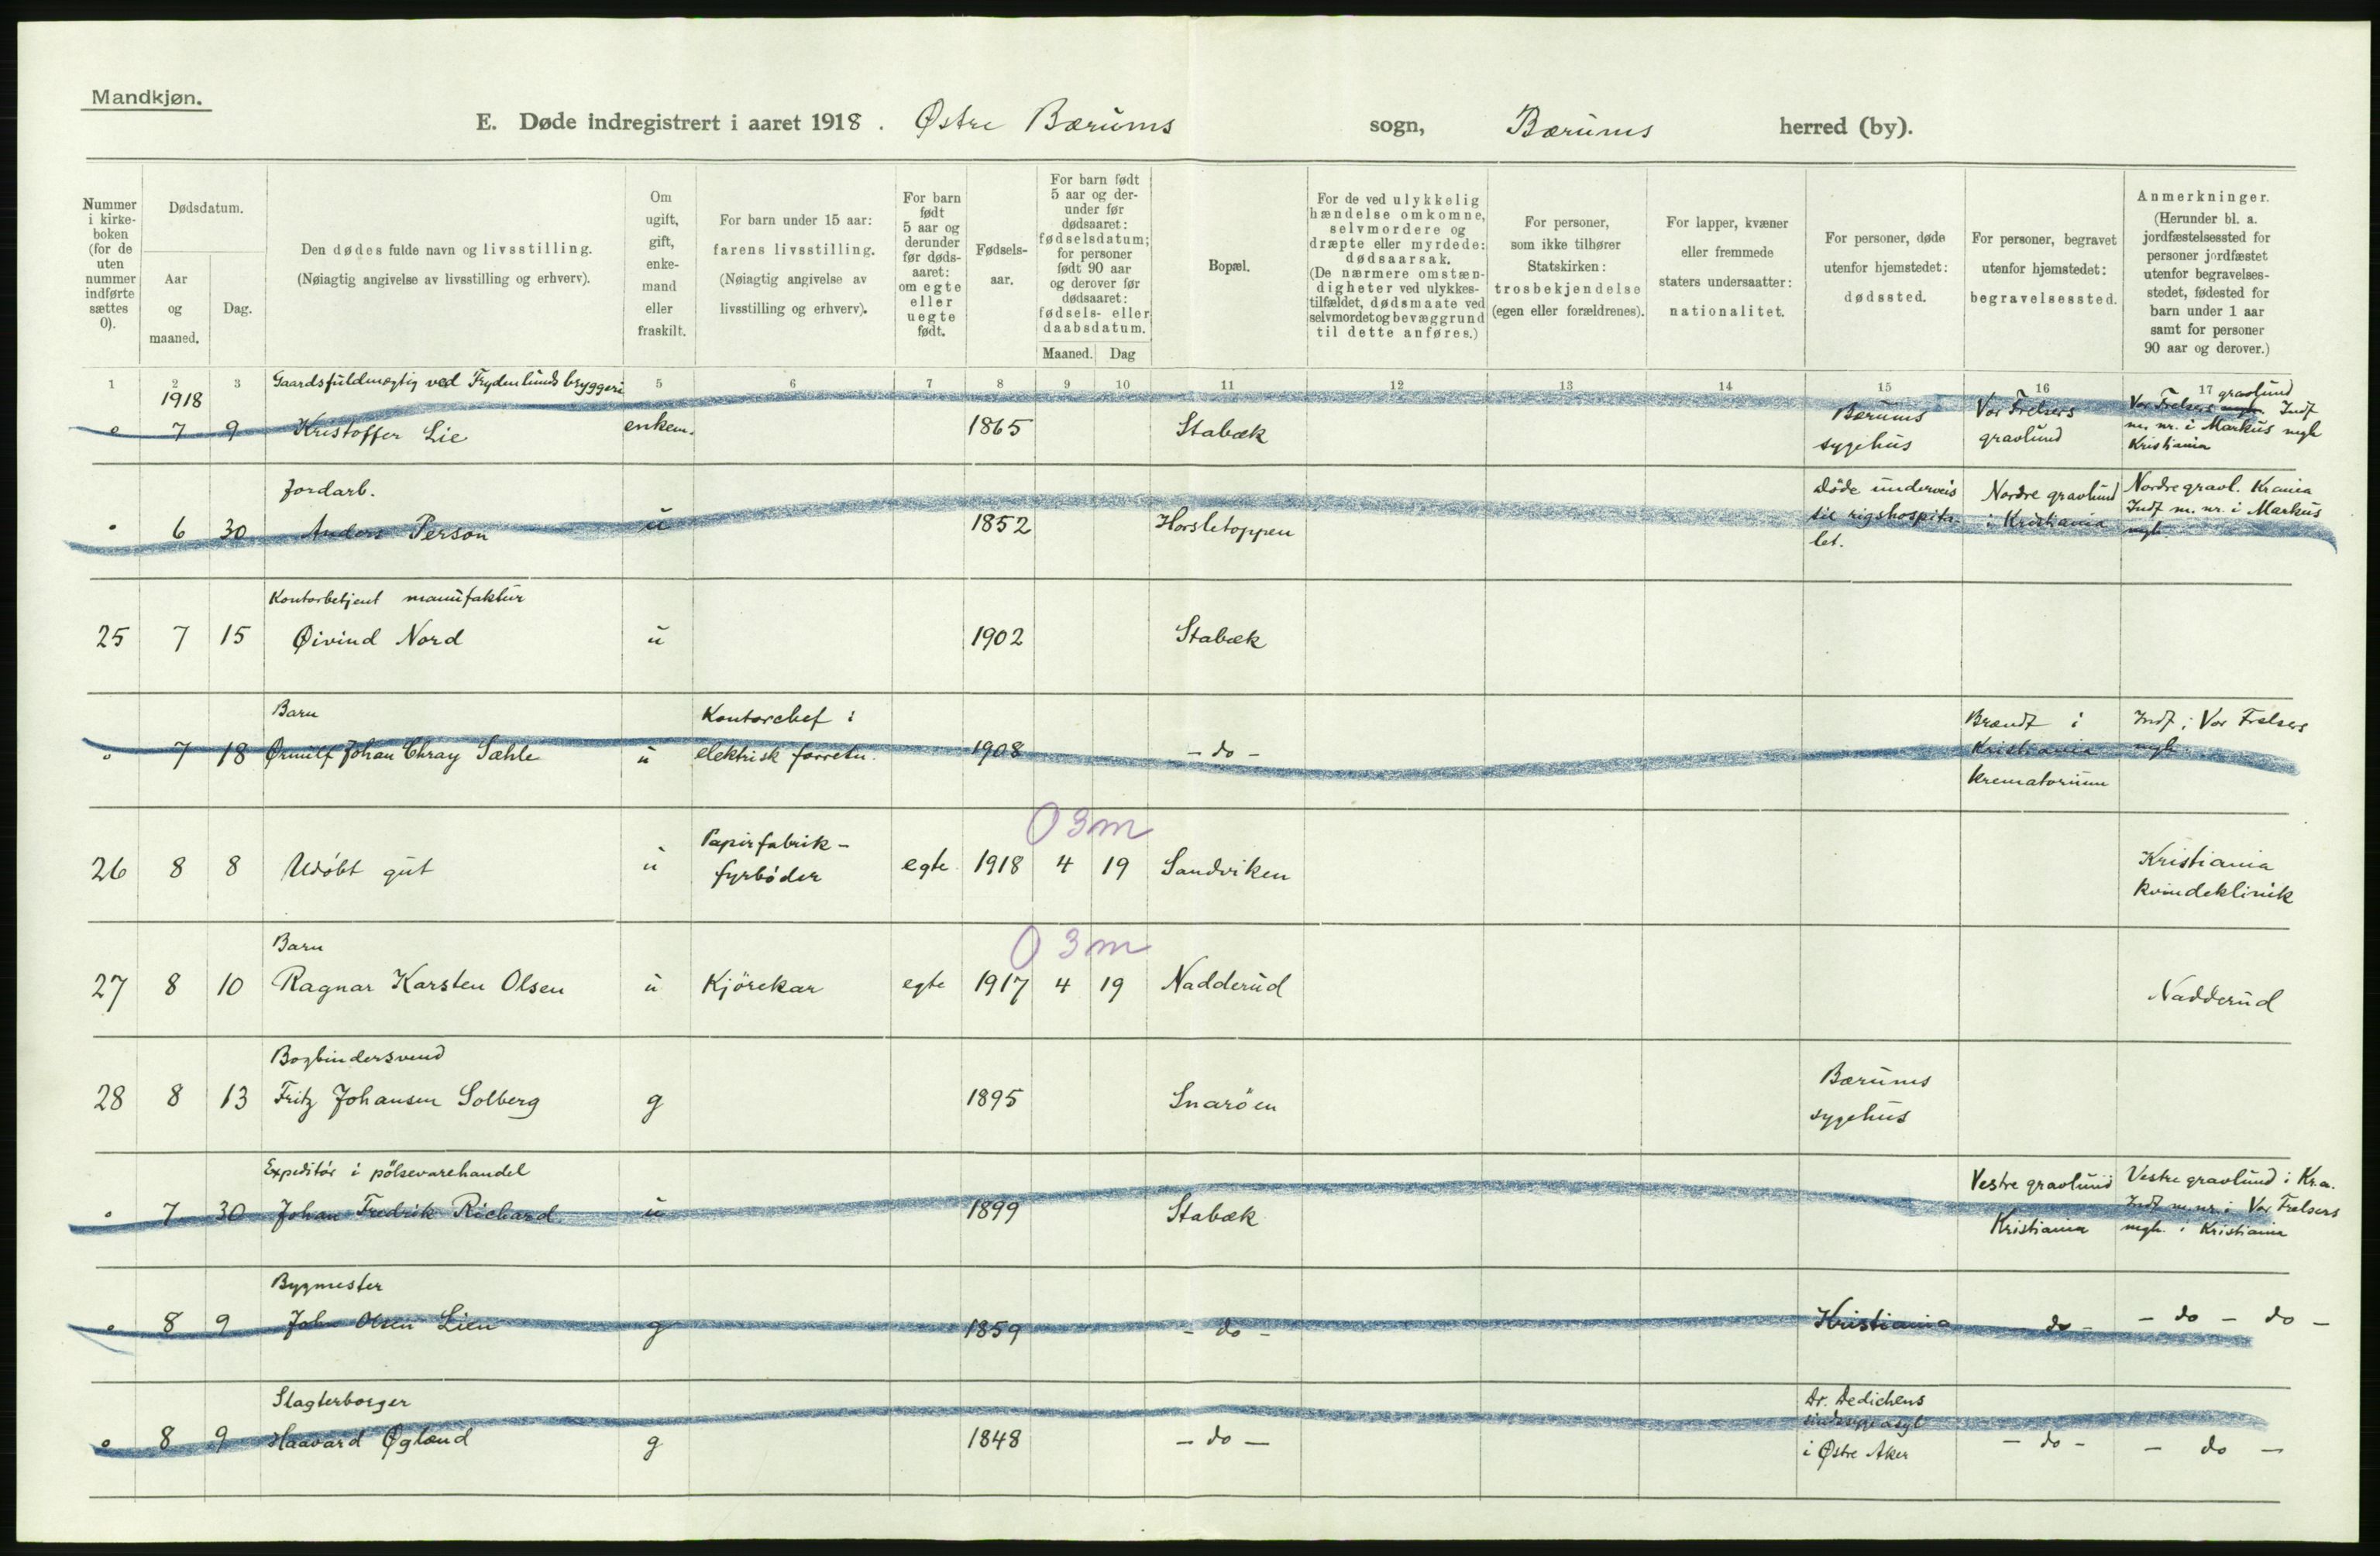 Mandkjøn.
E. Døde indregistrert i aaret 1918. Østre Bærums sogn, Bærums herred (by).
Nummer i kirke-boken (for de uten nummer indførte sættes 0).
Dødsdatum.
Aar og maaned.
Dag.
Den dødes fulde navn og livsstilling.
(Nøiagtig angivelse av livsstilling og erhverv).
Om ugift, gift, enke-mand eller fraskilt.
For barn under 15 aar: farens livsstilling.
(Nøiagtig angivelse av livsstilling og erhverv).
For barn født 5 aar og derunder før døds-aaret: om egte eller uegte født.
Fødsels-aar.
For barn født 5 aar og der-under før dødsaaret: fødselsdatum; for personer født 90 aar og derover før dødsaaret: fødsels- eller daabsdatum.
Maaned. Dag
Bopæl.
For de ved ulykkelig hændelse omkomne, selvmordere og dræpte eller myrdede: dødsaarsak.
(De nærmere omstæn-digheter ved ulykkes-tilfældet, dødsmaate ved selvmordet og bevæggrund til dette anføres.)
For personer, som ikke tilhører Statskirken: trosbekjendelse (egen eller forældrenes).
For lapper, kvæner eller fremmede staters undersaatter: nationalitet.
For personer, døde utenfor hjemstedet: dødssted.
For personer, begravet utenfor hjemstedet: begravelsessted.
Anmerkninger.
(Herunder bl. a. jordfæstelsessted for personer jordfæstet utenfor begravelses-stedet, fødested for barn under 1 aar samt for personer 90 aar og derover.)
1 2 3 5 6 7 8 9 10 11 12 13 14 15 16 17
1918 Gaardsfuldmægtig ved Frydenlunds bryggeri
0 7 9 Kristoffer Lie enkem. 1865 Stabæk Bærums sygehus Vor Frelsers gravlund Vor Frelsers gravlund Indf m. nr. i Markus mgh Kristiania
Jordarb.
0 6 30 Anders Person u 1852 Horsletoppen Døde underveis til rigshospita-let. Nordre gravlund i Kristiania Nordre gravl. Krania Indf m. nr. i Markus mgh.
Kontorbetjent manufaktur
25 7 15 Øivind Nord u 1902 Stabæk
Barn
0 7 18 Ørnulf Johan Chray Sæhle u Kontorchef i elektrisk forretn. 1908 - do - Brændt i Kristiania krematorium Indf i Vor Frelsers mgh.
0 3 m
26 8 8 Udøbt gut u Papirfabrik-fyrbøder egte 1918 4 19 Sandviken Kristiania kvindeklinik
Barn
0 3 m
27 8 10 Ragnar Karsten Olsen u Kjørekar egte 1917 4 19 Nadderud Nadderud
Bogbindersvend
28 8 13 Fritz Johansen Solberg g 1895 Snarøen Bærums sygehus
Expeditør i pølsevarehandel
0 7 30 Johan Fredrik Richard u 1899 Stabæk Vestre gravlund Kristiania Vestre gravlund i Kr.a. Indf m. nr. i Vor Frelsers mgh. i Kristiania
Bygmester
0 8 9 John Olsen Lien g 1859 - do - Kristiania - do - - do - do -
Slagterborger
0 8 9 Haavard Øglænd g 1848 - do - Dr. Dedichens sindssygeasyl i Østre Aker - do - - do -